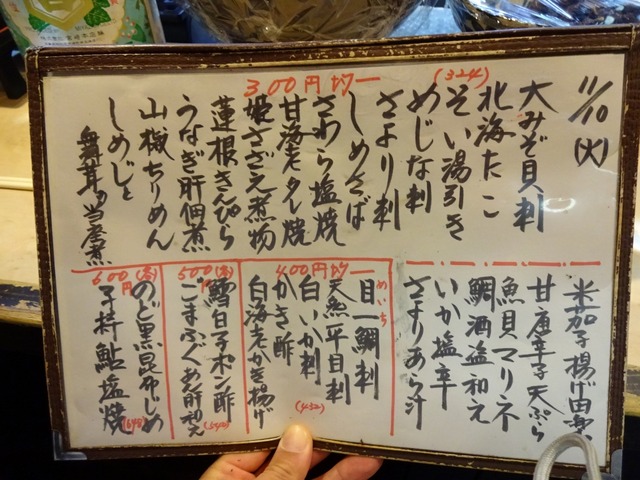 11/10(火)
300円均一
(324)
大みぞ貝刺
北海たこ
そい湯引き
めじな刺
さより刺
しめさば
さわら塩焼
甘海老タレ焼
姫さざえ煮物
蓮根きんぴら
うなぎ肝佃煮
山椒ちりめん
しめじと
舞茸の当座煮
米茄子揚げ田楽
甘唐辛子天ぷら
魚貝マリネ
鯛酒盗和え
いか塩辛
さよりあら汁
400円均一
めいち
目一鯛刺
天然平目刺
白いか刺
かき酢
白海老かき揚げ
(432)
500円(各)
鱈白子ポン酢
ごまふぐあん肝和え
(540)
600円(各)
のど黒昆布じめ
子持鮎塩焼
(648)